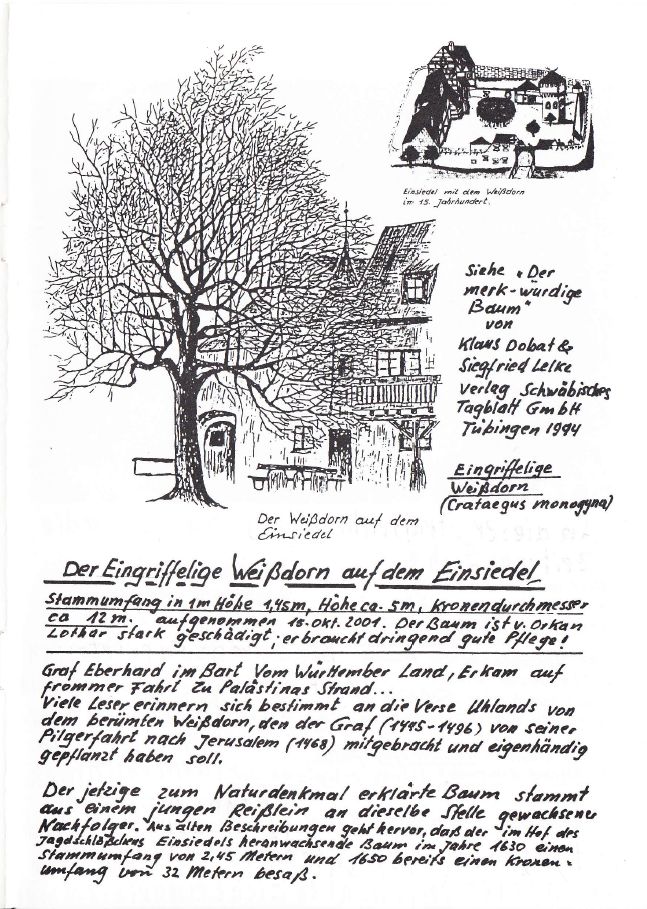 Einsiedel mit dem Weißdorn
im 15. Jahrhundert.
Siehe "Der
merk-würdige
Baum"
von
Klaus Dobat &
Siegfried Lelke
Verlag Schwäbisches
Tagblatt GmbH
Tübingen 1994
Eingriffelige
Weißdorn
(Crataegus monogyna)
Der Weißdorn auf dem
Einsiedel
Der Eingriffelige Weißdorn auf dem Einsiedel
Stammumfang in 1m Höhe 1,45m, Höhe ca. 5m, Kronendurchmesser
ca 12 m. aufgenommen 18.Okt.2001. Der Baum ist v. Orkan
Lothar stark geschädigt; er braucht dringend gute Pflege!
Graf Eberhard im Bart Vom Württember Land, Er kam auf
frommer Fahrt Zu Palästinas Strand...
Viele Leser erinnern sich bestimmt an die Verse Uhlands von
dem berümten Weißdorn, den der Graf (1445-1496) von seiner
Pilgerfahrt nach Jerusalem (1468) mitgebracht und eigenhändig
gepflanzt haben soll.
Der jetzige zum Naturdenkmal erklärte Baum stammt
aus einem jungen Reißlein an dieselbe Stelle gewachsener
Nachfolger. Aus alten Beschreibungen geht hervor, daß der im Hof des
Jagdschlößchens Einsiedels heranwachsende Baum im Jahre 1630 einen
Stammumfang von 2,45 Metern und 1650 bereits einen Kronen=
umfang von 32 Metern besaß.